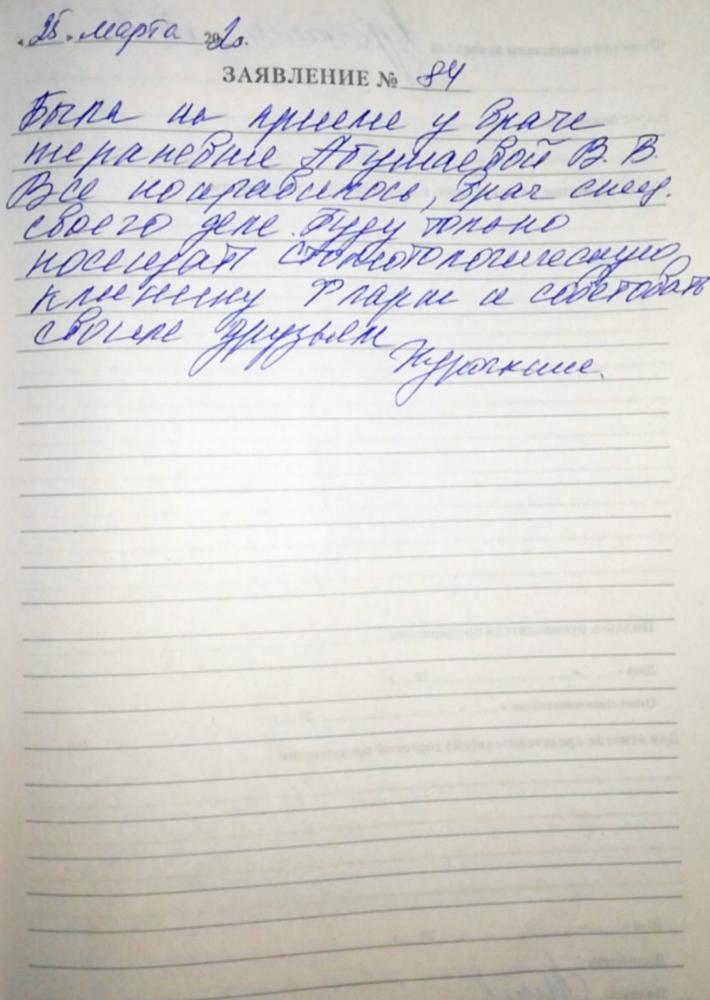 «25» марта 20
ЗАЯВЛЕНИЕ № 84
Была на приеме у врача
терапевта Абушаевой В. В.
Все понравилось, врач спец.
своего дела. Буду только
посещать стоматологическую
клинику и советовать
своим друзьям